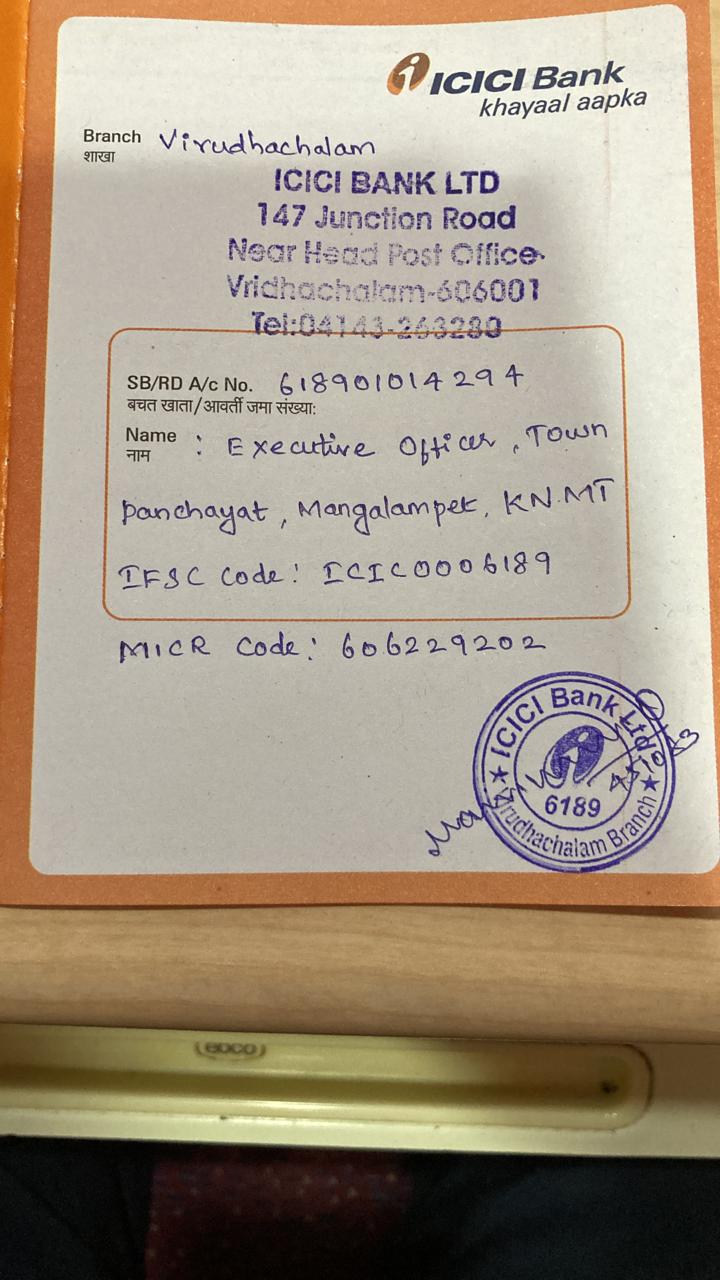 ICICI Bank
khayaal aapka
Branch Virudhachalam
शाखा
ICICI BANK LTD
147 Junction Road
Near Head Post Office
Vridhachalam-606001
Tel:04143-263280
SB/RD A/c No. 618901014294
बचत खाता/आवर्ती जमा संख्या:
Name : Executive Officer, Town
नाम
Panchayat, Mangalampet, KN.MT
IFSC Code: ICIC0006189
MICR Code: 606229202
ICICI Bank Ltd.
6189
Virudhachalam Branch